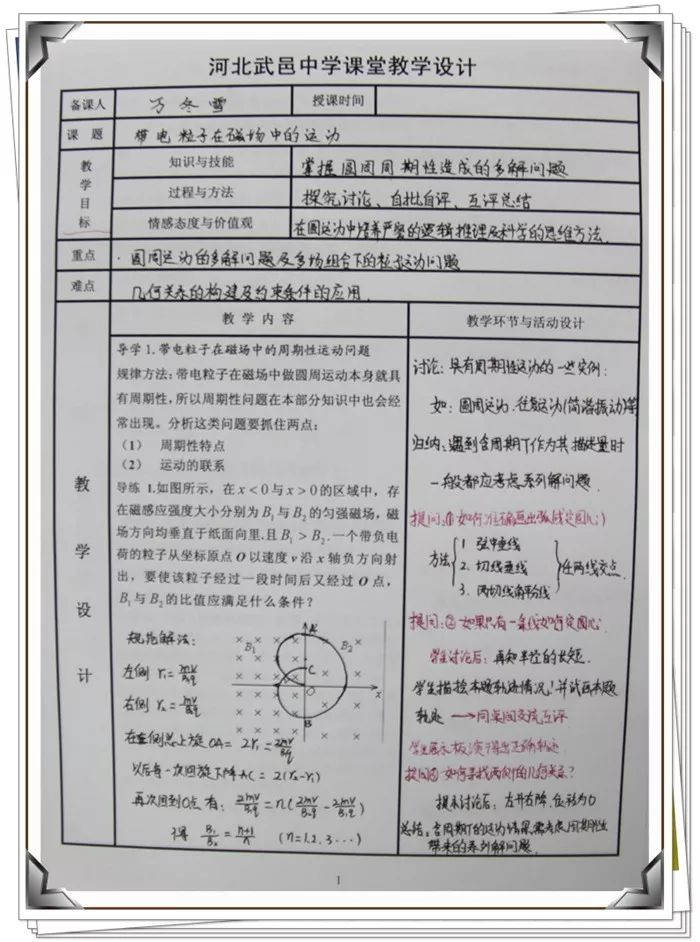 河北武邑中学课堂教学设计
备课人 万冬雪 授课时间
课 题 带电粒子在磁场中的运动
教学目标
知识与技能 掌握圆周周期性造成的多解问题
过程与方法 探究讨论、自批自评、互评总结
情感态度与价值观 在圆运动中培养严密的逻辑推理及科学的思维方法.
重点 圆周运动的多解问题及多场组合下的粒子运动问题
难点 几何关系的构建及约束条件的应用.
教学设计
教 学 内 容
导学 1. 带电粒子在磁场中的周期性运动问题
规律方法:带电粒子在磁场中做圆周运动本身就具
有周期性,所以周期性问题在本部分知识中也会经
常出现。分析这类问题要抓住两点:
(1) 周期性特点
(2) 运动的联系
导练 1.如图所示，在 x<0 与 x>0 的区域中，存
在磁感应强度大小分别为 B₁ 与 B₂ 的匀强磁场，磁
场方向均垂直于纸面向里.且 B₁ > B₂. 一个带负电
荷的粒子从坐标原点 O 以速度 v 沿 x 轴负方向射
出，要使该粒子经过一段时间后又经过 O 点，
B₁ 与 B₂ 的比值应满足什么条件？
规范解法:
左侧 r₁=mv/B₁q
右侧 r₂=mv/B₂q
B₁
A
B₂
C
O
x
B
在左侧总上旋 OA=2r₁=2mv/B₁q
以后每一次回旋下降 AC=2(r₂-r₁)
再次回到O点 有: 2mv/B₁q=n(2mv/B₂q-2mv/B₁q)
得 B₁/B₂=n+1/n (n=1.2.3···)
教学环节与活动设计
讨论: 具有周期性运动的一些实例:
如: 圆周运动.往复运动(简谐振动)等
归纳: 遇到含周期T作为其描述量时
一般都应考虑系列解问题.
提问:① 如何准确画出弧线定圆心;
方法 1 弦中垂线
2. 切线垂线
3. 两切线角平分线
任两线交点.
提问:② 如果只有一条线如何定圆心.
学生讨论后: 再知半径的长短.
学生描绘本题轨迹情况,并试画本题
轨迹 → 同桌间交流互评
学生展示板演得出正确轨迹
提问③ 如何寻找两侧的几何关系?
提示讨论后: 左升右降.位移为0
总结: 含周期T的运动情景,需考虑周期性
带来的系列解问题.
1